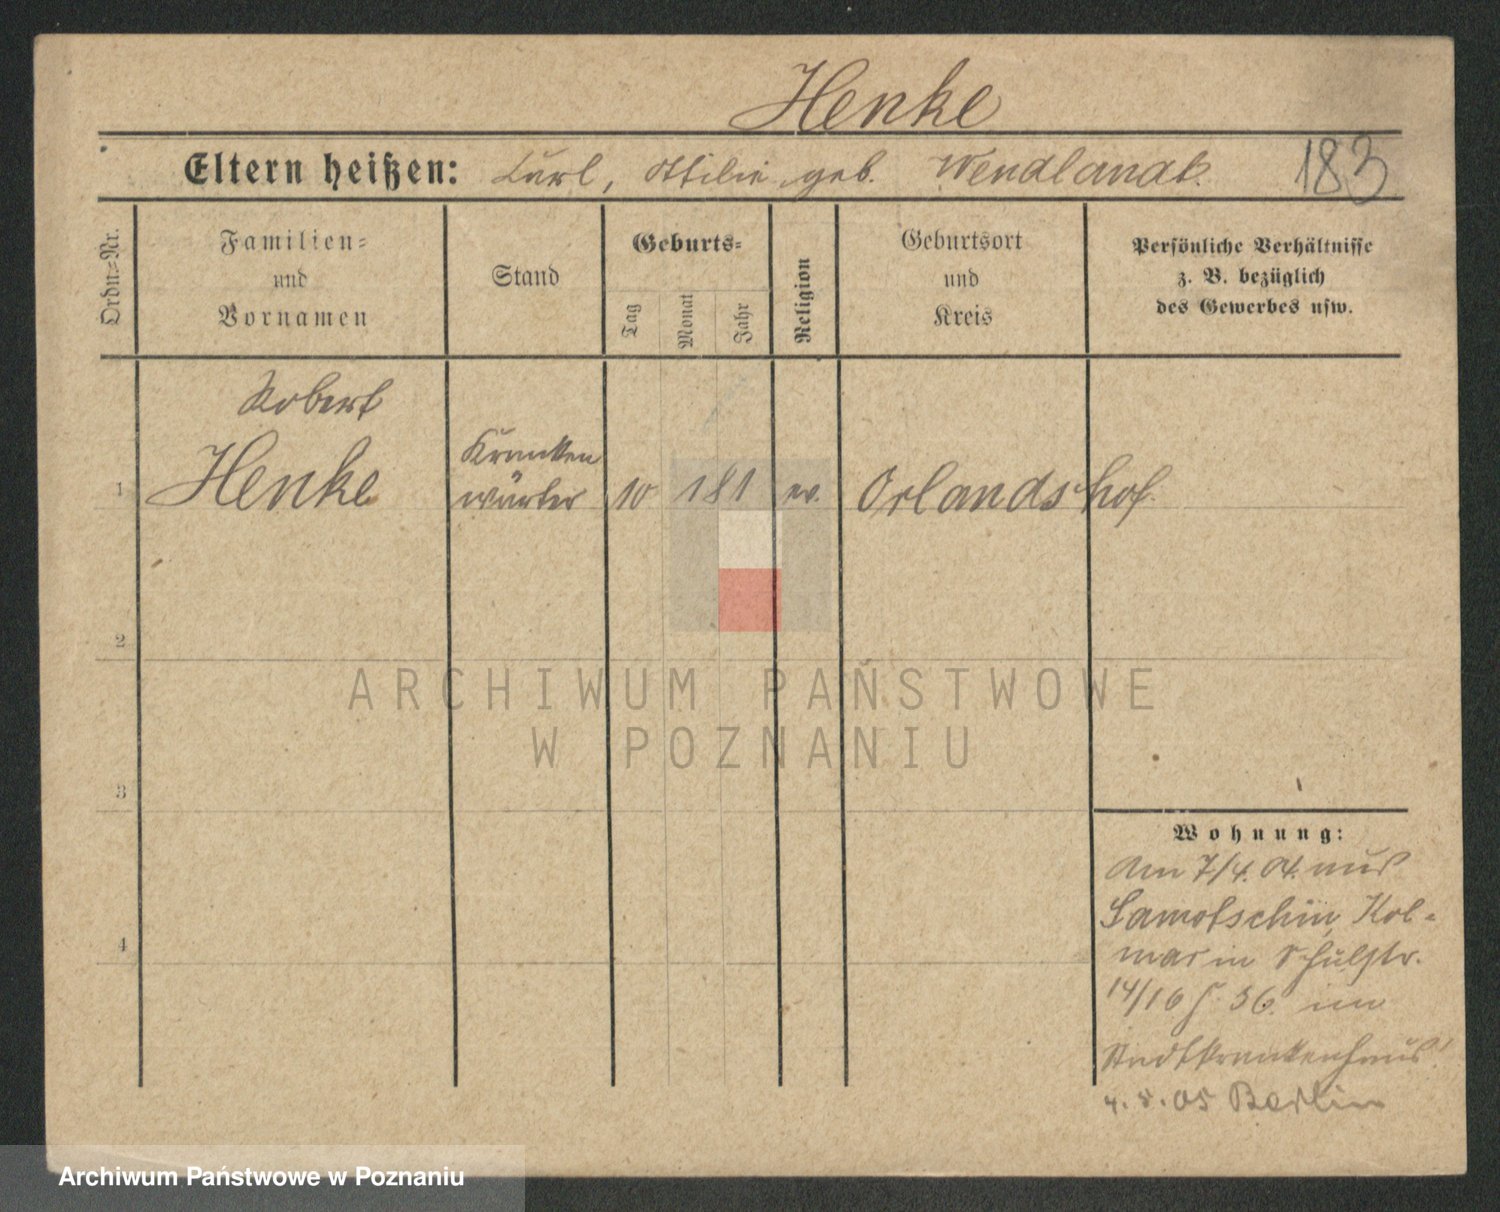 Henke
Eltern heißen: Carl, Ottilie geb. Wendlandt. 183
Ordn.=Nr.
Familien=
und
Vornamen
Stand
Geburts=
Tag
Monat
Jahr
Religion
Geburtsort
und
Kreis
Persönliche Verhältnisse
z. B. bezüglich
des Gewerbes usw.
Robert
1 Henke
Kranken
wärter
10 1 81 ev. Orlandshof.
2
3
4
ARCHIWUM PAŃSTWOWE
W POZNANIU
Wohnung:
Am 7/4. 04. aus
Samotschin, Kol=
mar in Schulstr.
14/16 36. im
Stadtkrankenhaus!
4. 5. 05 Berlin
Archiwum Państwowe w Poznaniu